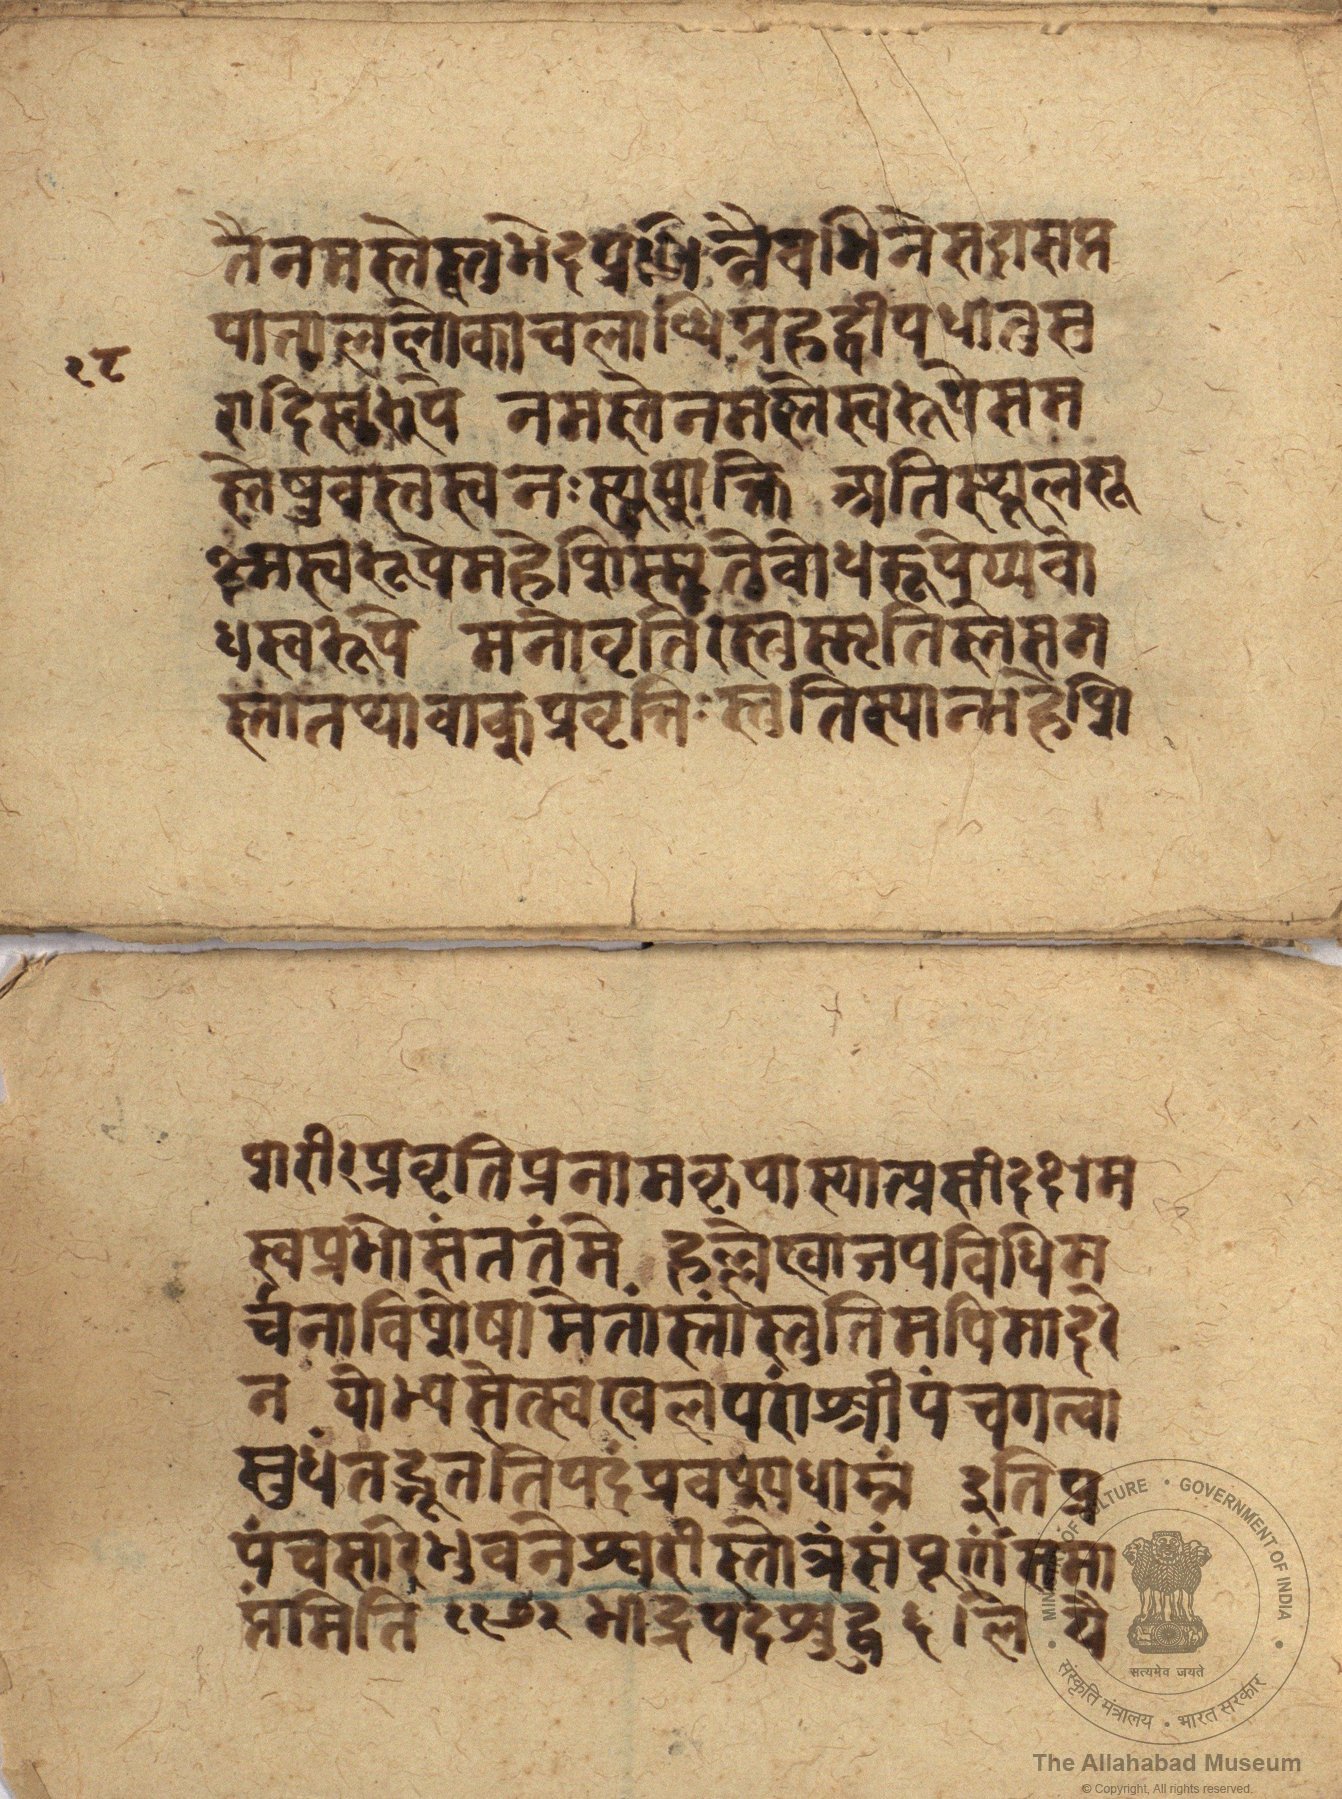 तैनमस्तेस्तुभेदप्रभिन्नैवभिनेसदासप्त
पातालूलोकाचलाब्धिग्रहद्वीपधातुस्व
२८
रादिस्वरूपे नमस्तेनमस्तेस्वरूपेसम
स्तेषुवस्तुस्वनःस्थूषुशक्ति अतिस्थूलसू
क्ष्मस्वरूपेमहेशिस्मृतेबोधरूपेप्यबो
धस्वरूपे मनोवृतिरस्तुस्मृतिस्तेसम
स्तातथावाक्प्रवृत्तिःस्तुतिस्यान्महेशि
शरीरप्रवृतिप्रनामकृपास्यात्प्रसीदक्षम
स्वप्रभोसंततंमे हृल्लेखाजपविधिम
र्चनाविशेषामेतांस्तांस्तुतिमपिमादरे
न योभ्यसेत्स्वखलपरांश्रीपंचगत्वा
सुधंतद्भूततिपदंप्रवषुषधाम्नं इतिप्र
पंचसारेभुवनेश्वरीस्तोत्रंसंपूर्णंसमा
प्तमिति १९७२ भाद्रपदशुद्ध ६ लि ये
MINISTRY OF CULTURE • GOVERNMENT OF INDIA
सत्यमेव जयते
संस्कृति मंत्रालय • भारत सरकार
The Allahabad Museum
© Copyright, All rights reserved.